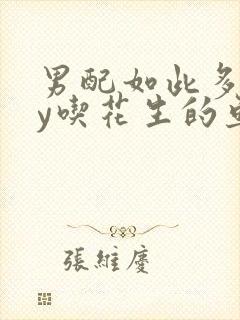 男配如此多
y喫花生的
張維慶